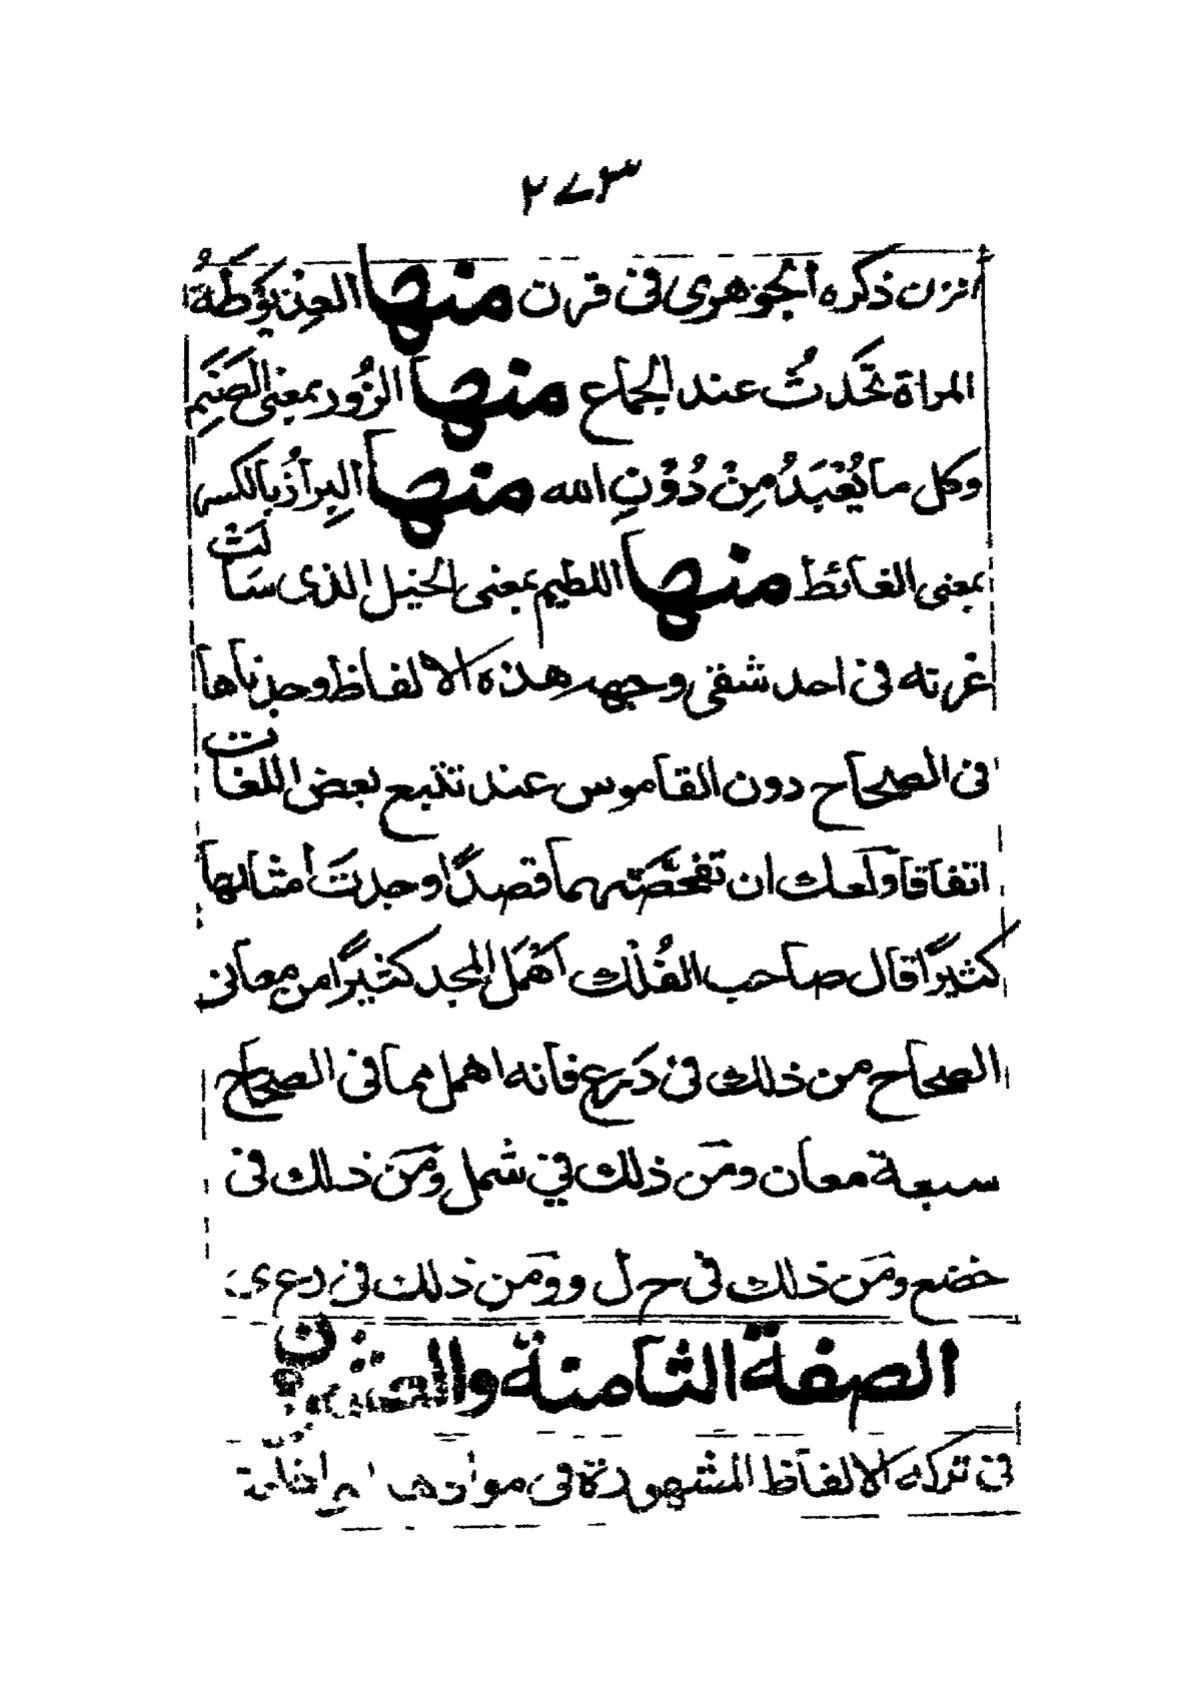 ٢٧٣
اقرن ذكره الجوهرى فى قرن منها العِذْيَوْطَةُ
المراة تُحَدثُ عند الجماع منها الزُور بمعنى الصَنَمِ
وكل ما يُعْبَدُ مِنْ دُوْنِ الله منها البِرازُ بالكسر
بمعنى الغائط منها اللطيم بمعنى الخيل الذى سَالَتْ
غرته فى احد شقى وجهه هذه الالفاظ وجدناها
فى الصحاح دون القاموس عند تتبع بعض اللغات
اتفاقا ولَعلك ان تفحّصَتَهما قصدًا وجدتَ امثالها
كثيرًا قال صاحب الفُلْك اَهْمَل المجد كثيرًا من معانى
الصحاح من ذلك فى دَرع فانه اهمل مما فى الصحاح
سبعة معان ومن ذلك في شمل ومَن ذلك فى
خضع ومَن ذلك فى ح ل و ومن ذلك فى رع ى
الصفة الثامنة والعشرون
فى تركه الالفاظ المشهورة فى موادها